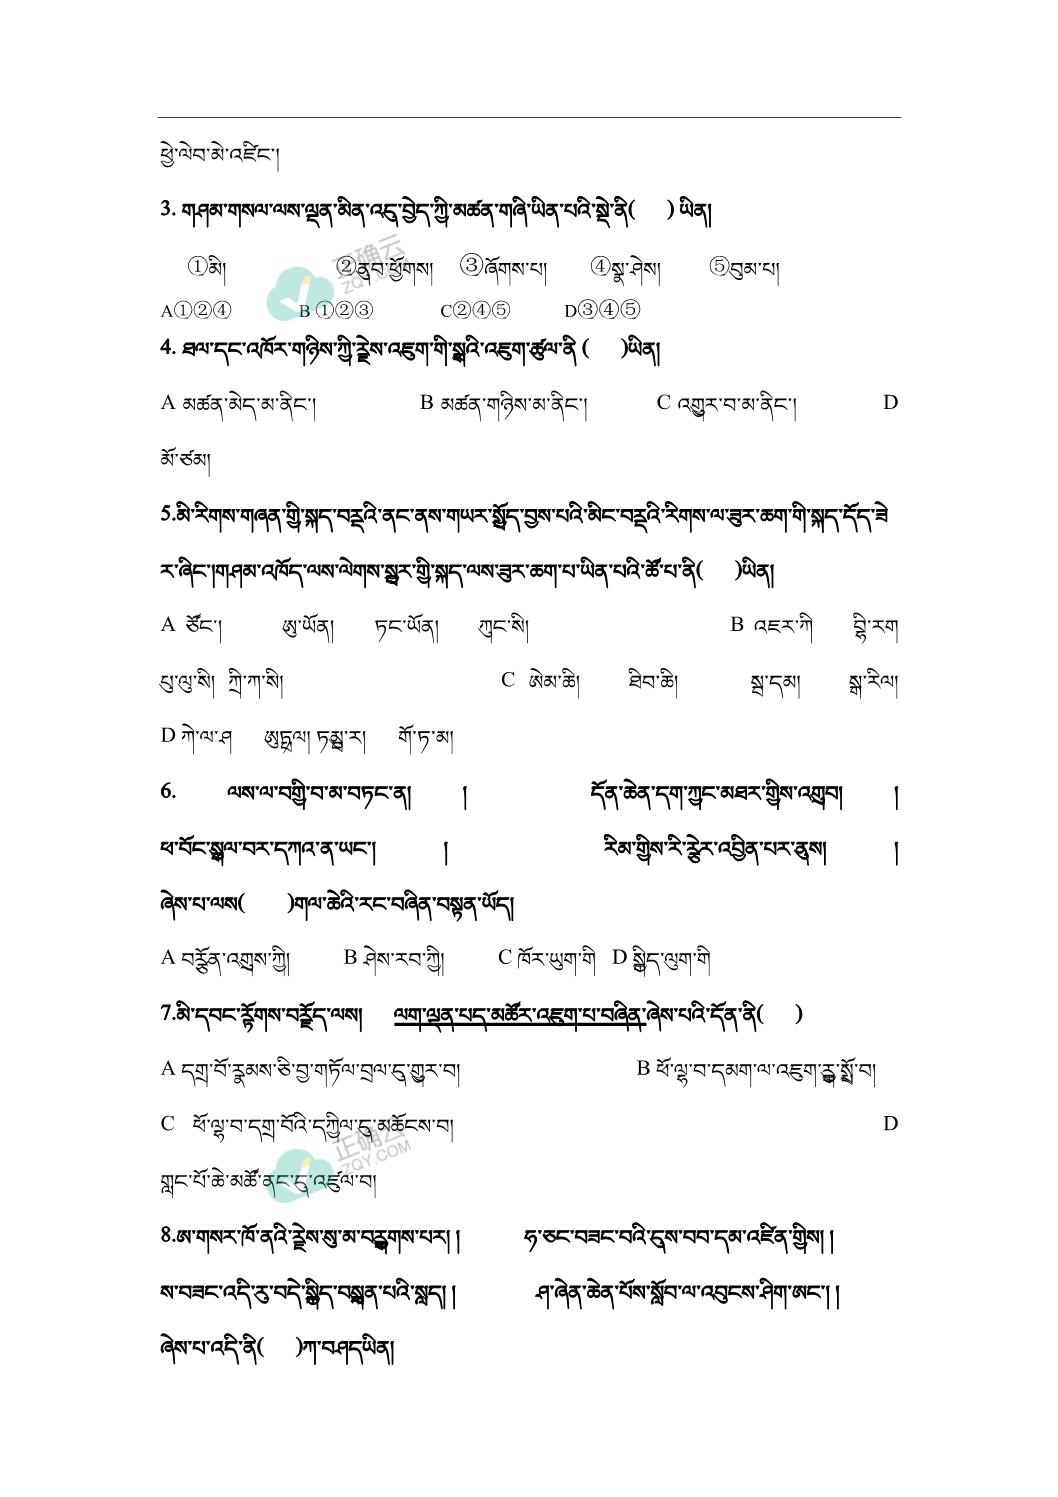 ཕྱེ་ལེབ་མེ་འཛིང་།
3. གཤམ་གསལ་ལས་ལྡན་མིན་འདུ་བྱེད་ཀྱི་མཚན་གཞི་ཡིན་པའི་སྡེ་ནི( ) ཡིན།
①མི། ②ནུབ་ཕྱོགས། ③ཞོགས་པ། ④སྣ་ཤེས། ⑤བུམ་པ།
A①②④ B ①②③ C②④⑤ D③④⑤
4. ཐལ་དང་འཁོར་གཉིས་ཀྱི་རྗེས་འཇུག་གི་སྒྲའི་འཇུག་ཚུལ་ནི ( )ཡིན།
A མཚན་མེད་མ་ནིང་། B མཚན་གཉིས་མ་ནིང་། C འགྱུར་བ་མ་ནིང་། D
མོ་ཙམ།
5.མི་རིགས་གཞན་གྱི་སྐད་བརྡའི་ནང་ནས་གཡར་སྤྱོད་བྱས་པའི་མིང་བརྡའི་རིགས་ལ་ཟུར་ཆག་གི་སྐད་དོད་ཟེ
ར་ཞིང་།གཤམ་འཁོད་ལས་ལེགས་སྦྱར་གྱི་སྐད་ལས་ཟུར་ཆག་པ་ཡིན་པའི་ཚོ་པ་ནི( )ཡིན།
A ཙོང་། ཨུ་ཡོན། ཏང་ཡོན། ཀུང་སི། B འཇར་ཀི ཧྥི་རག
པུ་ལུ་སི། ཀྲི་ཀ་སི། C ཨེམ་ཆི། ཐིབ་ཆི། སྦ་དམ། སྒ་རིལ།
D ཀེ་ལ་ཤ ཨུཏྤལ། ཏམྦུ་ར། གོ་ཏ་མ།
6. ལས་ལ་བགྱི་བ་མ་བཏང་ན། ། དོན་ཆེན་དག་ཀྱང་མཐར་གྱིས་འགྲུབ། །
ཕ་བོང་སྒུལ་བར་དཀའ་ན་ཡང་། ། རིམ་གྱིས་རི་རྩེར་འབྱིན་པར་ནུས། །
ཞེས་པ་ལས( )གལ་ཆེའི་རང་བཞིན་བསྟན་ཡོད།
A བརྩོན་འགྲུས་ཀྱི། B ཤེས་རབ་ཀྱི། C ཁོར་ཡུག་གི D སྐྱིད་ལུག་གི
7.མི་དབང་རྟོགས་བརྗོད་ལས། ལག་ལྡན་པད་མཚོར་འཇུག་པ་བཞིན་ཞེས་པའི་དོན་ནི( )
A དགྲ་བོ་རྣམས་ཅི་བྱ་གཏོལ་བྲལ་དུ་གྱུར་བ། B ཕོ་ལྷ་བ་དམག་ལ་འཇུག་རྒྱུ་སྤྲོ་བ།
C ཕོ་ལྷ་བ་དགྲ་བོའི་དཀྱིལ་དུ་མཆོངས་བ། D
གླང་པོ་ཆེ་མཚོ་ནང་དུ་འཛུལ་བ།
8.ཨ་གསར་ཁོ་ནའི་རྗེས་སུ་མ་བརྒྱུགས་པར། ། ཧ་ཅང་བཟང་བའི་དུས་བབ་དམ་འཛིན་གྱིས། །
ས་བཟང་འདི་རུ་བདེ་སྐྱིད་བསྐྲུན་པའི་སླད། ། ཤ་ཞེན་ཆེན་པོས་སློབ་ལ་འབུངས་ཤིག་ཨང་། །
ཞེས་པ་འདི་ནི( )ཀ་བཤད་ཡིན།
正确云
ZQY.COM